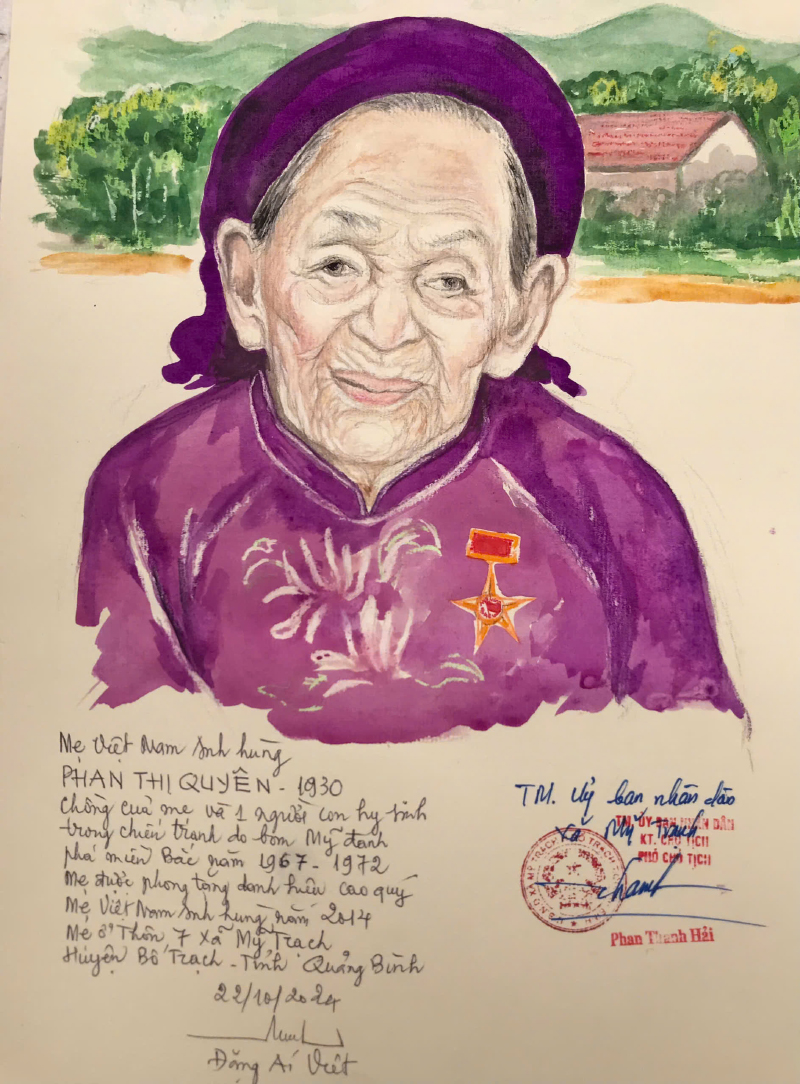 Mẹ Việt Nam anh hùng
PHAN THỊ QUYÊN - 1930
Chồng của mẹ và 1 người con hy sinh
trong chiến tranh do bom Mỹ đánh
phá miền Bắc năm 1967 - 1972
Mẹ được phong tặng danh hiệu cao quý
Mẹ Việt Nam anh hùng năm 2014
Mẹ ở Thôn 7 xã Mỹ Trạch
Huyện Bố Trạch - Tỉnh Quảng Bình
22/10/2024
Đặng Ái Việt
TM. Uỷ ban nhân dân
xã Mỹ Trạch
TM. ỦY BAN NHÂN DÂN
KT. CHỦ TỊCH
PHÓ CHỦ TỊCH
Phan Thanh Hải